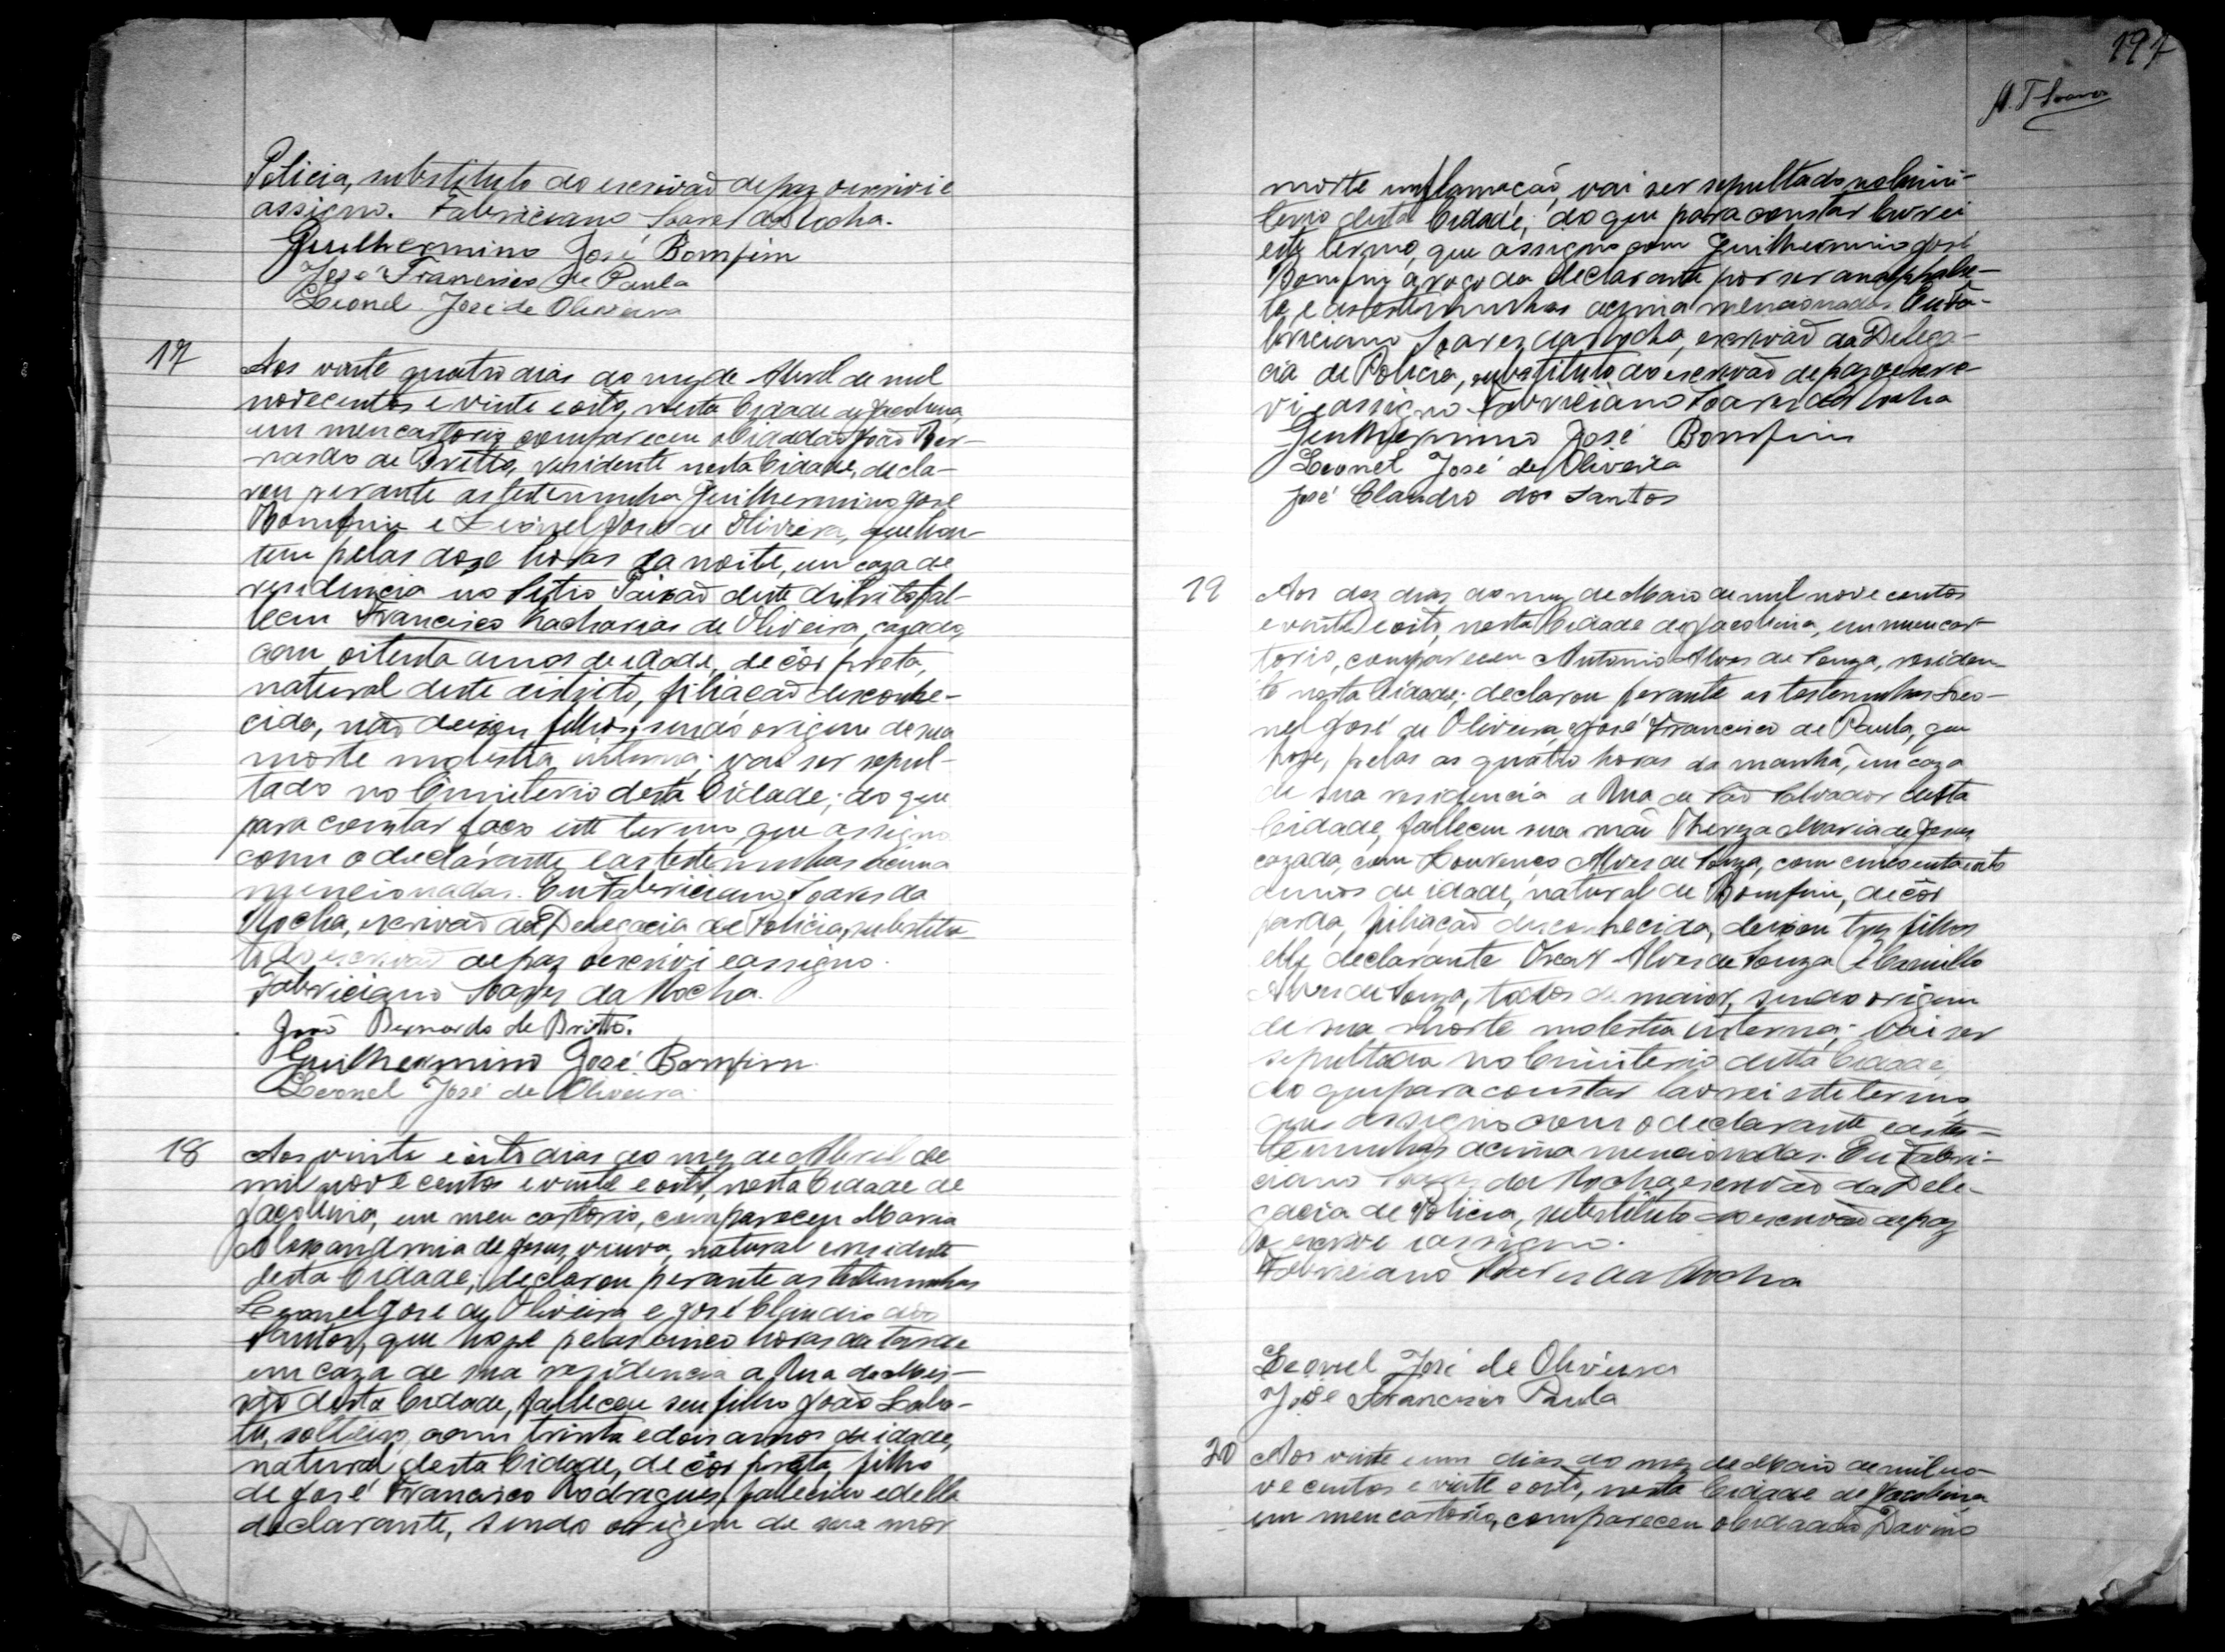 Policia, substituto do escrivaõ de paz o escrivi e
assigno. Fabriciano Soares da Rocha.
Guilhermino José Bomfim
José Francisco de Paula
Leonel José de Oliveira
17
Aos vinte quatro dias do mez de Abril de mil
novecentos e vinte e oito, nesta Cidade de Jacobina,
em meu cartorio compareceu o Cidadaõ João Ber-
nardo de Britto, residente nesta Cidade, decla-
rou perante as testemunha Guilhermino José
Bomfim e Leonel José de Oliveira, que hon-
tem pelas doze horas da noite, em caza de
residencia no Sitio Paixaõ deste districto fal-
leceu Francisco Zacharias de Oliveira, cazado,
com oitenta annos de idade, de côr preta,
natural deste districto, filiaçaõ desconhe-
cida, naõ deixou filhos; sendo origem de sua
morte molestia interna; vai ser sepul-
tado no Cimiterio desta Cidade; do que
para constar faço este termo, que assigno
com o declarante e as testemunhas acima
mencionadas. Eu Fabriciano Soares da
Rocha, escrivaõ da Delegacia de Policia, substitu-
to do escrivaõ de paz o escrivi e assigno.
Fabriciano Soares da Rocha.
João Bernardo de Britto.
Guilhermino José Bomfim
Leonel José de Oliveira
18
Aos vinte e oito dias do mez de Abril de
mil nove centos e vinte e oito, nesta Cidade de
Jacobina, em meu cartorio, compareceu Maria
de Jesus, viuva, natural e residente
desta Cidade; declarou perante as testemunhas
Leonel José de Oliveira e José Claudio dos
Santos, que hoje pelas cinco horas da tarde
em caza de sua residencia a Rua da Mis-
são desta Cidade, falleceu seu filho João Laba-
tu, solteiro, com trinta e dois annos de idade,
natural desta Cidade, de côr preta, filho
de José Francisco Rodrigues, fallecido e della
declarante, sendo origem de sua mor
197
A. T. Soares
morte inflamaçaõ, vai ser sepultado no Cimi-
terio desta Cidade; do que para constar lavrei
este termo, que assigno com Guilhermino José
Bomfim a rogo da declarante por ser analphabe-
ta, e as testemunhas acima mencionadas. Eu Fa-
briciano Soares da Rocha, escrivaõ da Delega-
cia de Policia, substituto do escrivaõ de paz o escre-
vi e assigno. Fabriciano Soares da Rocha
Guilhermino José Bomfim
Leonel José de Oliveira
José Claudio dos Santos
19
Aos dez dias do mez de Maio de mil nove centos
e vinte e oito, nesta Cidade de Jacobina, em meu car-
torio, compareceu Antonio Alves de Souza, residen-
te nesta Cidade; declarou perante as testemunhas Leo-
nel José de Oliveira e José Francisco de Paula, que
hoje, pelas as quatro horas da manhã, em caza
de sua residencia a Rua de Saõ Salvador desta
Cidade, falleceu sua mãi Thereza Maria de Jesus
cazada, com Lourenço Alves de Souza, com cincoenta e oito
annos de idade, natural de Bomfim, de côr
parda, filiaçaõ desconhecida, deixou trez filhos
elle declarante Oscar Alves de Souza e Camillo
Alves de Souza, todos de maior, sendo origem
de sua morte molestia interna; vai ser
sepultada no Cimiterio desta Cidade;
do que para constar lavrei este termo,
que assigno com o declarante e as tes-
temunhas acima mencionadas. Eu Fabri-
ciano Soares da Rocha, escrivaõ da Dele-
gacia de Policia, substituto do escrivaõ de paz
o escrivi e assigno.
Fabriciano Soares da Rocha
Leonel José de Oliveira
José Francisco Paula
20
Aos vinte e um dias do mez de Maio de mil no-
ve centos e vinte e oito, nesta Cidade de Jacobina
em meu cartorio, compareceu o Cidadaõ Davino